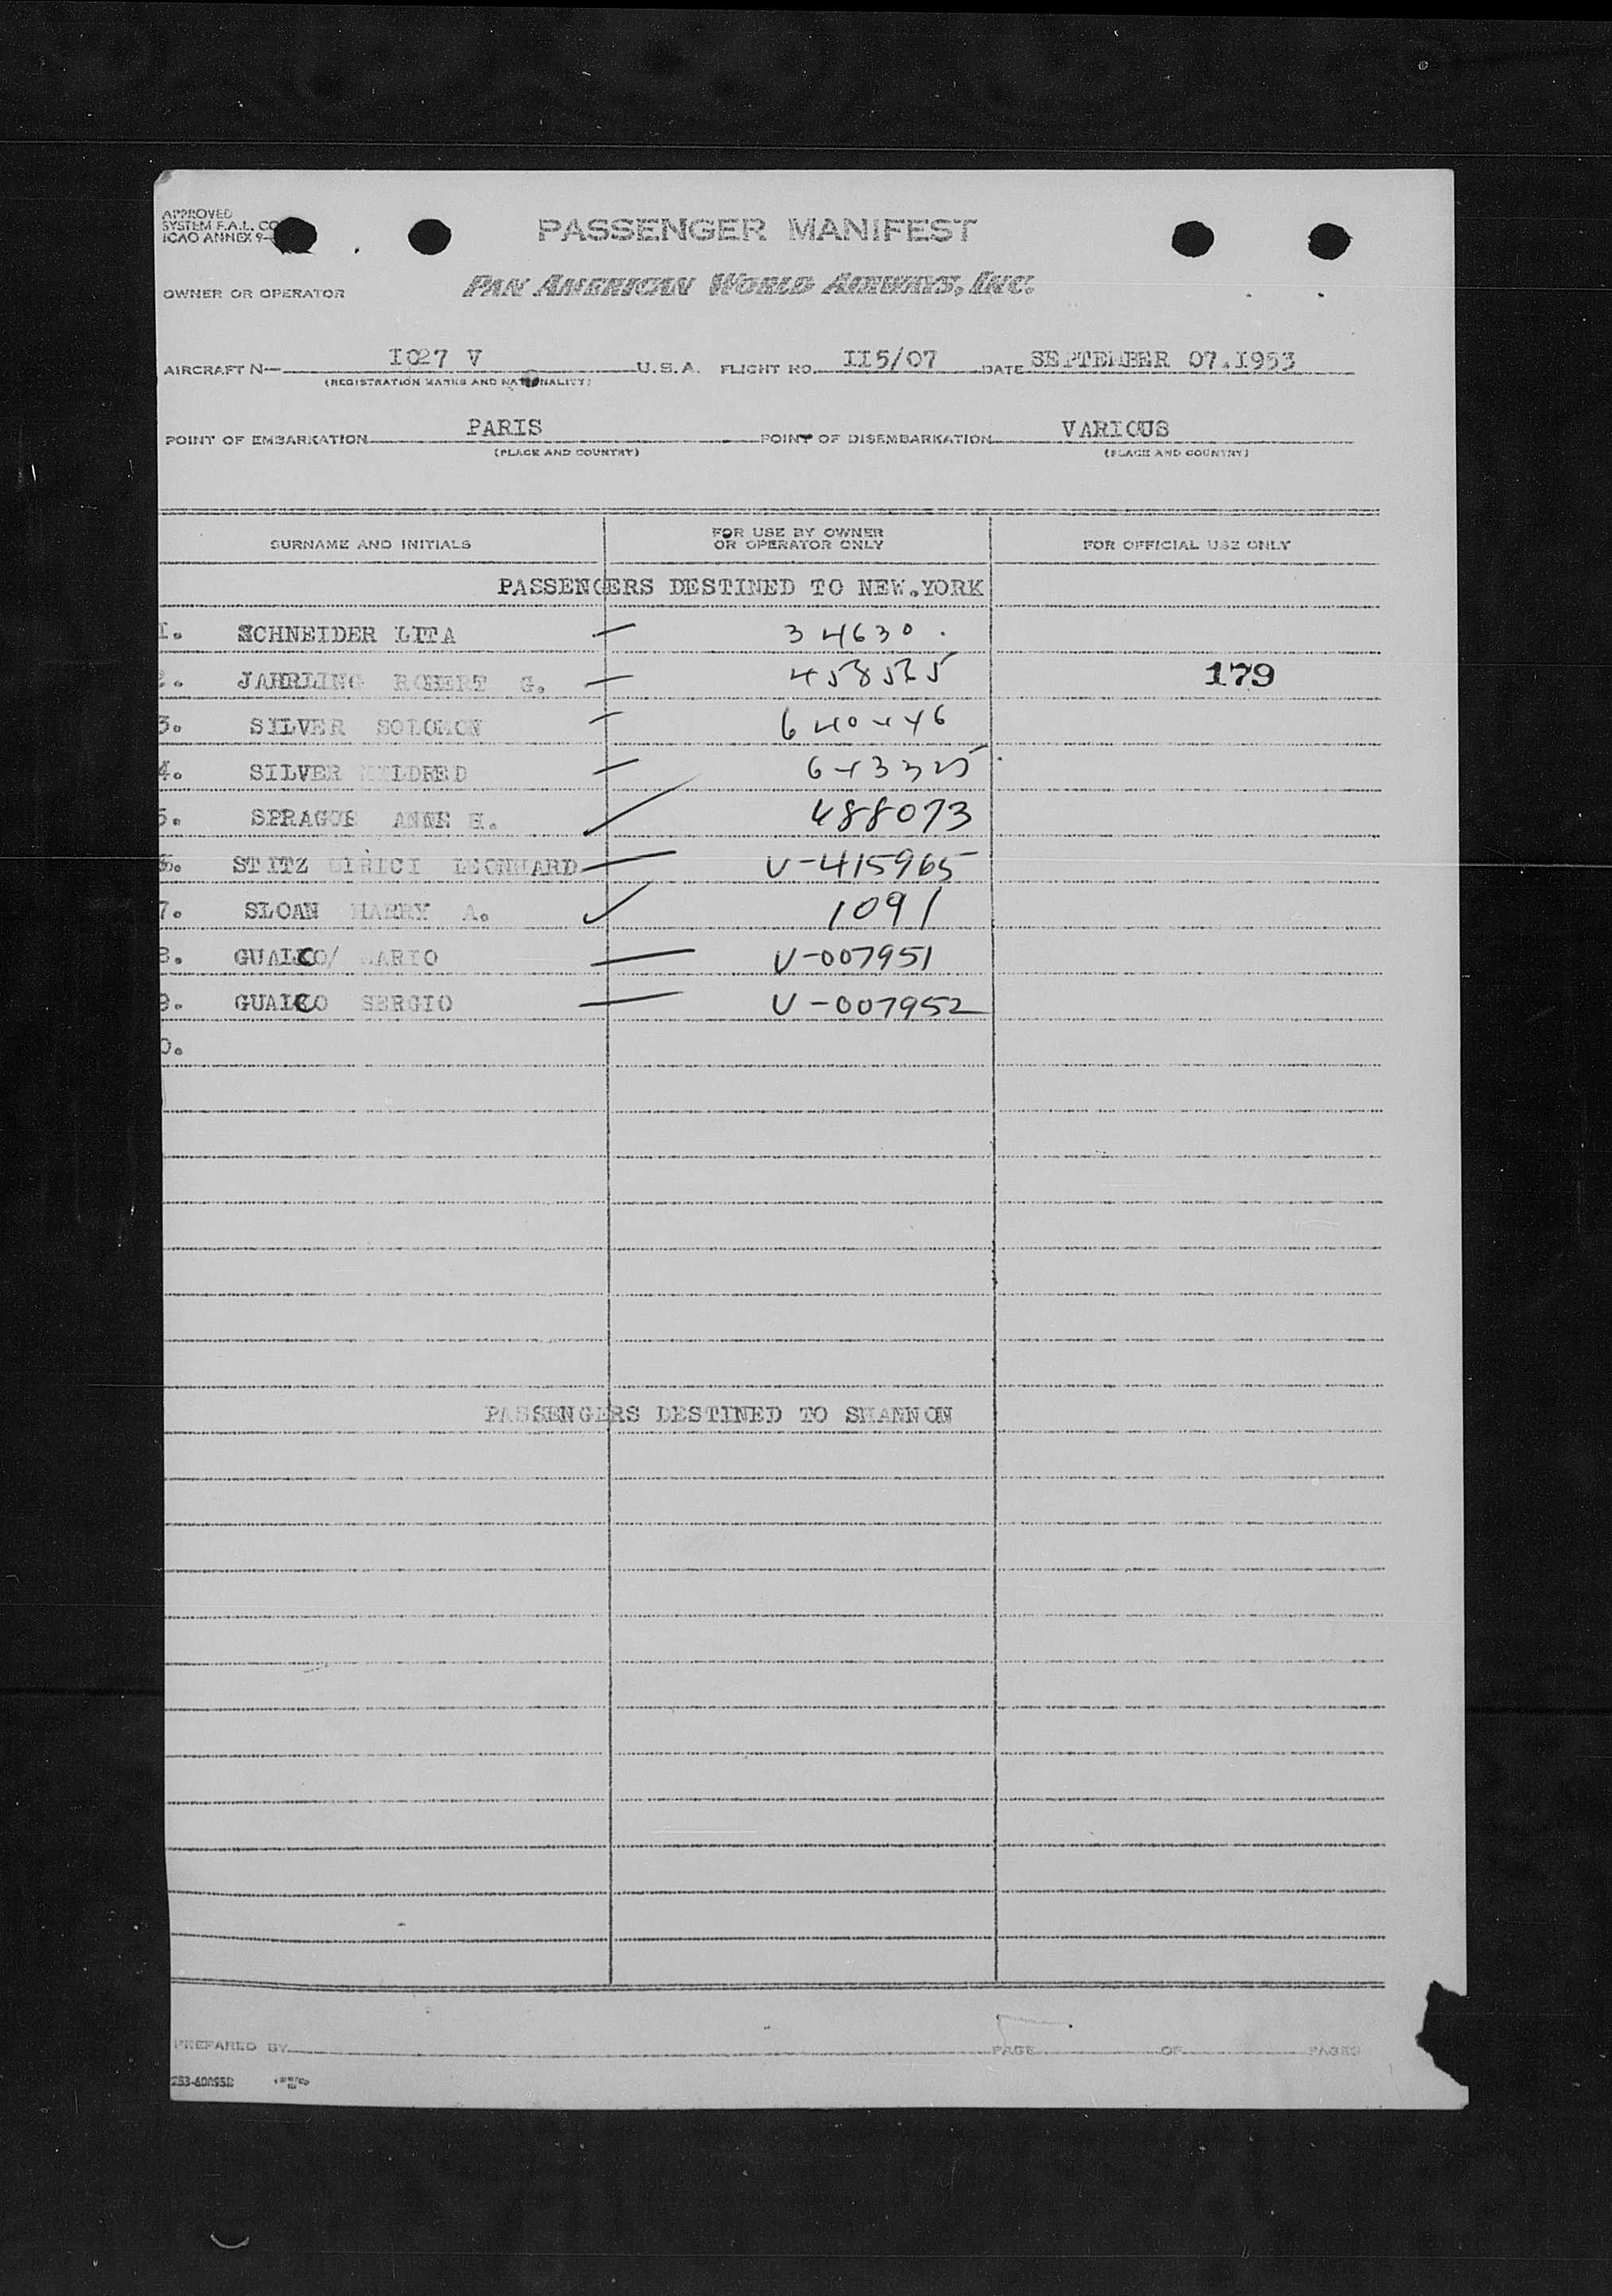 APPROVED
SYSTEM F.A.L. CO
ICAO ANNEX 9-
PASSENGER MANIFEST
OWNER OR OPERATOR PAN AMERICAN WORLD AIRWAYS, INC.
AIRCRAFT N— IC27 V U.S.A. FLIGHT NO. II5/07 DATE SEPTEMBER 07.I953
(REGISTRATION MARKS AND NATIONALITY)
POINT OF EMBARKATION PARIS POINT OF DISEMBARKATION VARIOUS
(PLACE AND COUNTRY) (PLACE AND COUNTRY)
SURNAME AND INITIALS FOR USE BY OWNER OR OPERATOR ONLY FOR OFFICIAL USE ONLY
PASSENGERS DESTINED TO NEW.YORK
I. SCHNEIDER LITA — 34630.
2. JAHRLING ROBERT G. — 458525 179
3. SILVER SOLOMON — 640446
4. SILVER MILDRED — 643325
5. SPRAGUE ANNE H. 488073
6. STITZ ULRICI LEONHARD — V-415965
7. SLOAN HARRY A. ✓ 1091
8. GUALCO/ MARIO — V-007951
9. GUALCO SERGIO — V-007952
0.
PASSENGERS DESTINED TO SHANNON
PREPARED BY PAGE OF PAGES